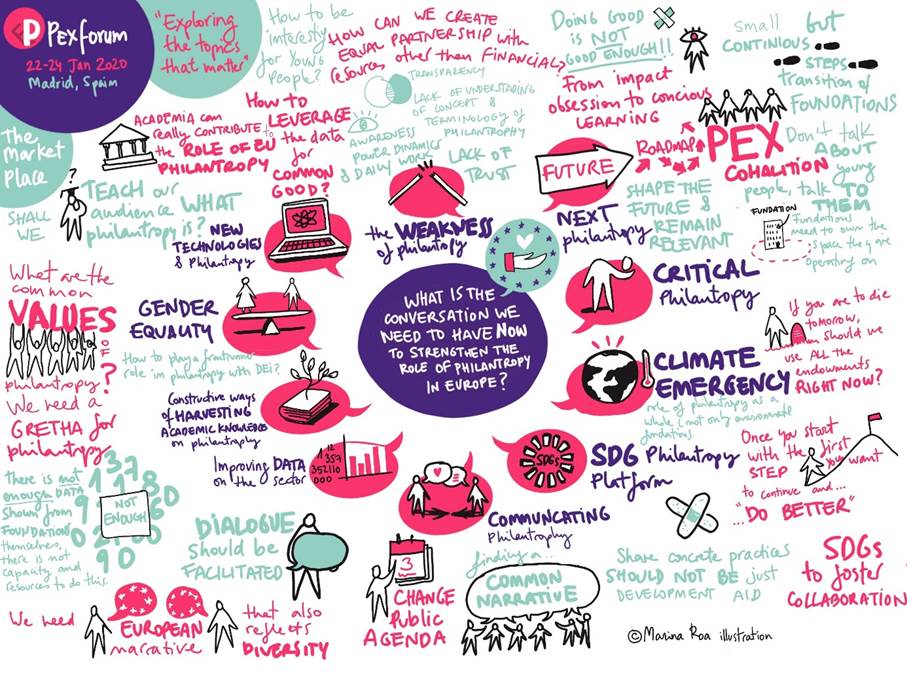 PEXforum
22-24 Jan 2020
Madrid, Spain
"Exploring
the topics
that matter"
The
Market
Place
How to be
interesty
for Young
People?
HOW CAN WE CREATE
EQUAL PARTNERSHIP with
resources other than FINANCIAL?
DOING GOOD
is NOT
GOOD ENOUGH!!
small but
CONTINIOUS
STEPS
transition of
FOUNDATIONS
ACADEMIA can
really CONTRIBUTE to
the ROLE OF EU
PHILANTROPY
How to
LEVERAGE
the data
for
COMMON
GOOD?
TRANSPARENCY
LACK OF UNDERSTADING
OF CONCEPT &
TERMINOLOGY of
PHILANTROPHY
AWARENESS
POWER DYNAMICS
& DAILY WORK
LACK OF
TRUST
From impact
obsession to concious
LEARNING
FUTURE
ROADMAP
PEX
COHALITION
Don't talk
ABOUT
young
people, talk TO
THEM
SHALL
WE
?
TEACH our
audience WHAT
philantropy is?
NEW
TECHNOLOGIES
& Philantropy
the WEAKNESS
of philantropy
NEXT
philantropy
SHAPE THE
FUTURE &
REMAIN
RELEVANT
FOUNDATION
Fundations
need to own the
space they are
operating on
What are the
common
VALUES
OF
philantropy?
We need a
GRETHA for
philantropy
GENDER
EQUALITY
How to play a frontrunner
role in philantropy with DEI?
WHAT IS THE
CONVERSATION WE
NEED TO HAVE NOW
TO STRENGTHEN THE
ROLE OF PHILANTROPY
IN EUROPE?
CRITICAL
Philantopy
CLIMATE
EMERGENCY
role of philantropy as a
whole (not only environmte
fundations.
If you are to die
tomorrow,
should we
use ALL the
endowments
RIGHT NOW?
Constructive ways
of HARVESTING
ACADEMIC KNOWLEDGE
on philantraphy
Improving DATA
on the sector
1,12
1357
352110
000
SDGs
SDG Philantropy
Platform
Once you start
with the first
STEP you want
to continue and...
..."DO BETTER"
There is not
enough DATA
shown from
FOUNDATIONS
themselves,
there is not
capacity and
resources to do this.
137
NOT
ENOUGH
90
DIALOGUE
should be
FACILITATED
COMMUNCATING
Philantrophy
3
CHANGE
Public
AGENDA
finding a...
COMMON
NARRATIVE
Share concrete practices
SHOULD NOT BE just
DEVELOPMENT AID
SDGs
to foster
COLLABORATION
We need
EUROPEAN
narrative
that also
reflects
DIVERSITY
©Marina Roa illustration